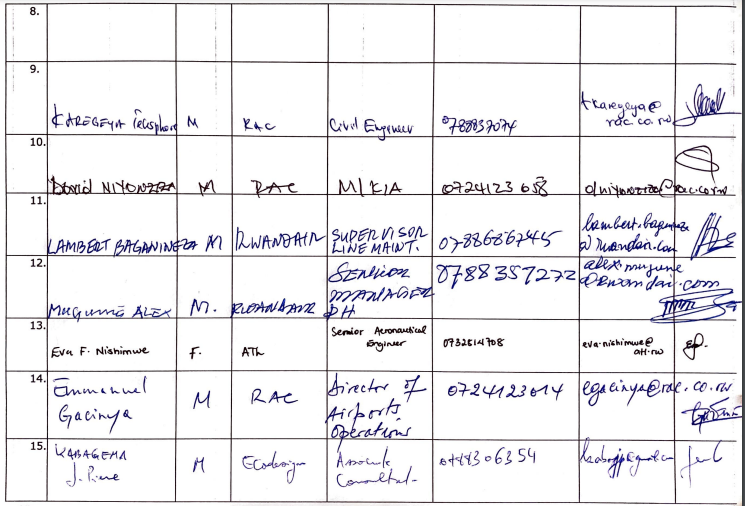 8.
9.
KAREGEYA Telesphore M RAC Civil Engineer 0788837074 tkaregeya@rac.co.rw
10.
David NIYONZIZA M RAC M/KIA 0724123658 dniyonziza@rac.co.rw
11.
LAMBERT BAGANINEZA M RWANDAIR SUPERVISOR LINE MAINT. 0788686745 lambert.baganineza@rwandair.com
12.
Mugume ALEX M. RWANDAIR SENIOR MANAGER DH 0788357272 alex.mugume@rwandair.com
13.
Eva F. Nishimwe F. ATL Senior Aeronautical Engineer 0732814708 eva.nishimwe@atl.rw
14.
Emmanuel Gacinya M RAC Director of Airports Operations 0724123014 egacinya@rac.co.rw
15.
KABAGEMA J. Pierre M Ecodesign Associate Consultat.